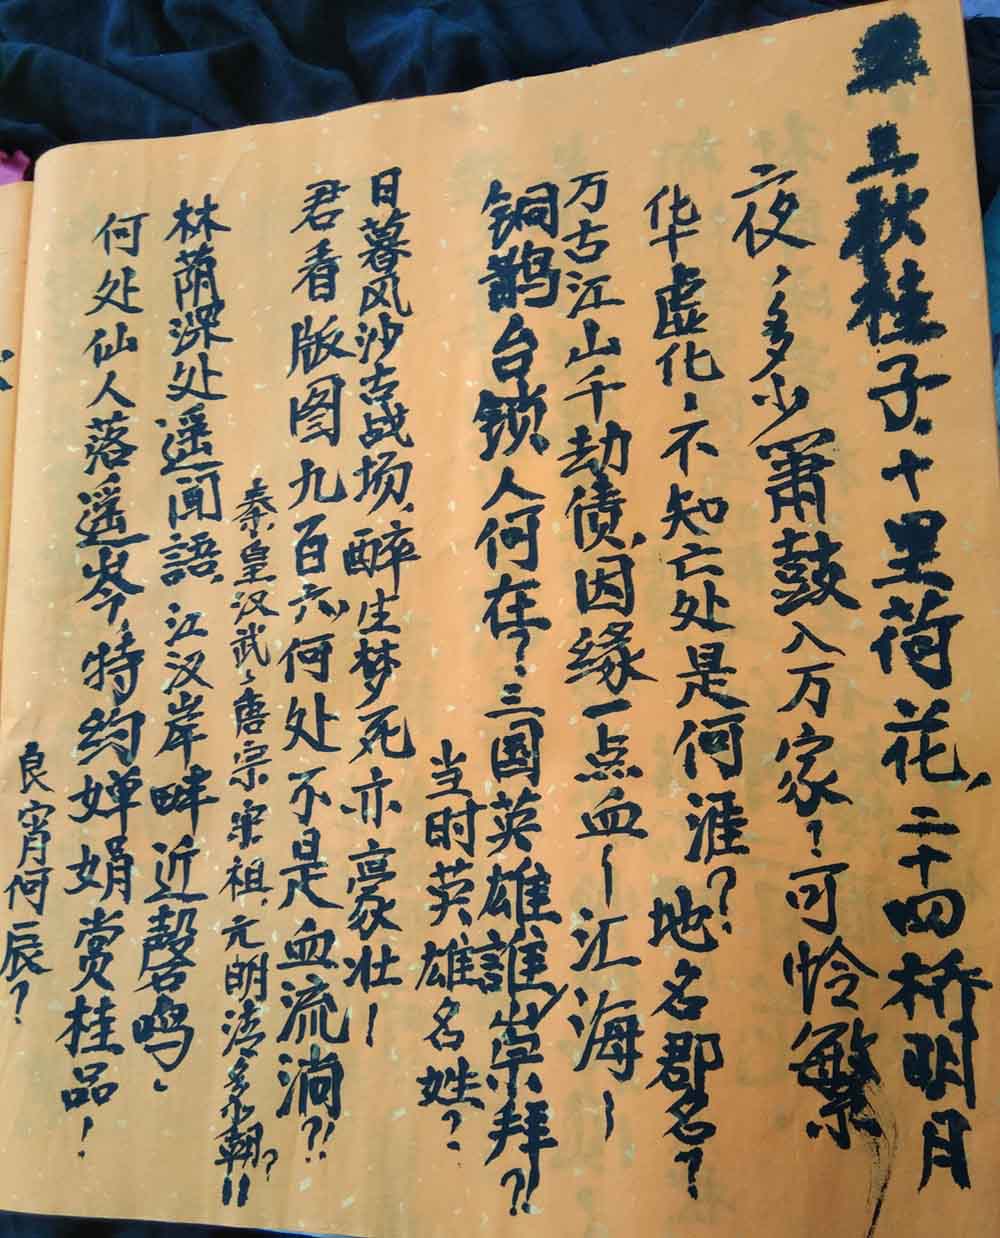 三秋桂子、十里荷花，二十四桥明月
夜，多少箫鼓入万家？可怜繁
华虚化，不知亡处是何涯？地名郡名？
万古江山千劫债，因缘一点血～汇海～
铜鹊台锁人何在？三国英雄誰崇拜？！
当时英雄名姓？
日暮风沙古战场，醉生梦死亦豪壮～
君看版图九百六，何处不是血流淌？！
秦皇汉武、唐宗宋祖、元明清多少朝？！！
林荫深处遥闻語，江汉岸畔近磬鸣，
何处仙人落遥岑，特约婵娟赏桂品！
良宵何辰？